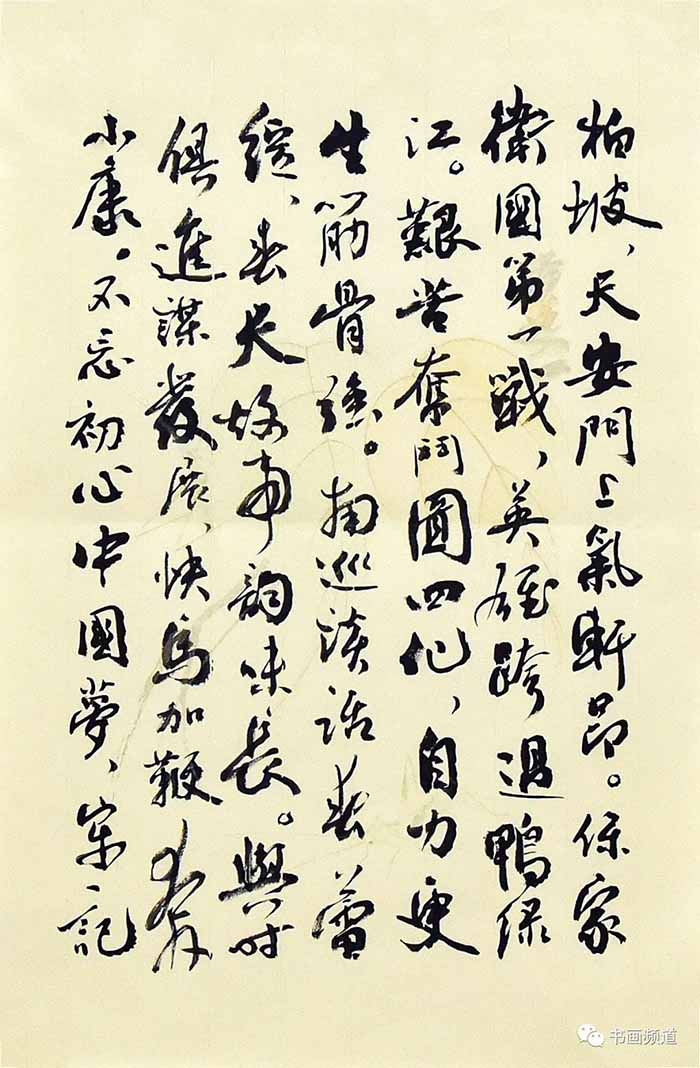 柏坡、天安門上氣軒昂。保家
衛國第一戰、英雄跨過鴨綠
江。艱苦奮鬥圖四化、自力更
生筋骨強。南巡談話春蕾
綻、春天故事韻味長。與時
俱進謀發展、快馬加鞭奔
小康。不忘初心中國夢、牢記
书画频道